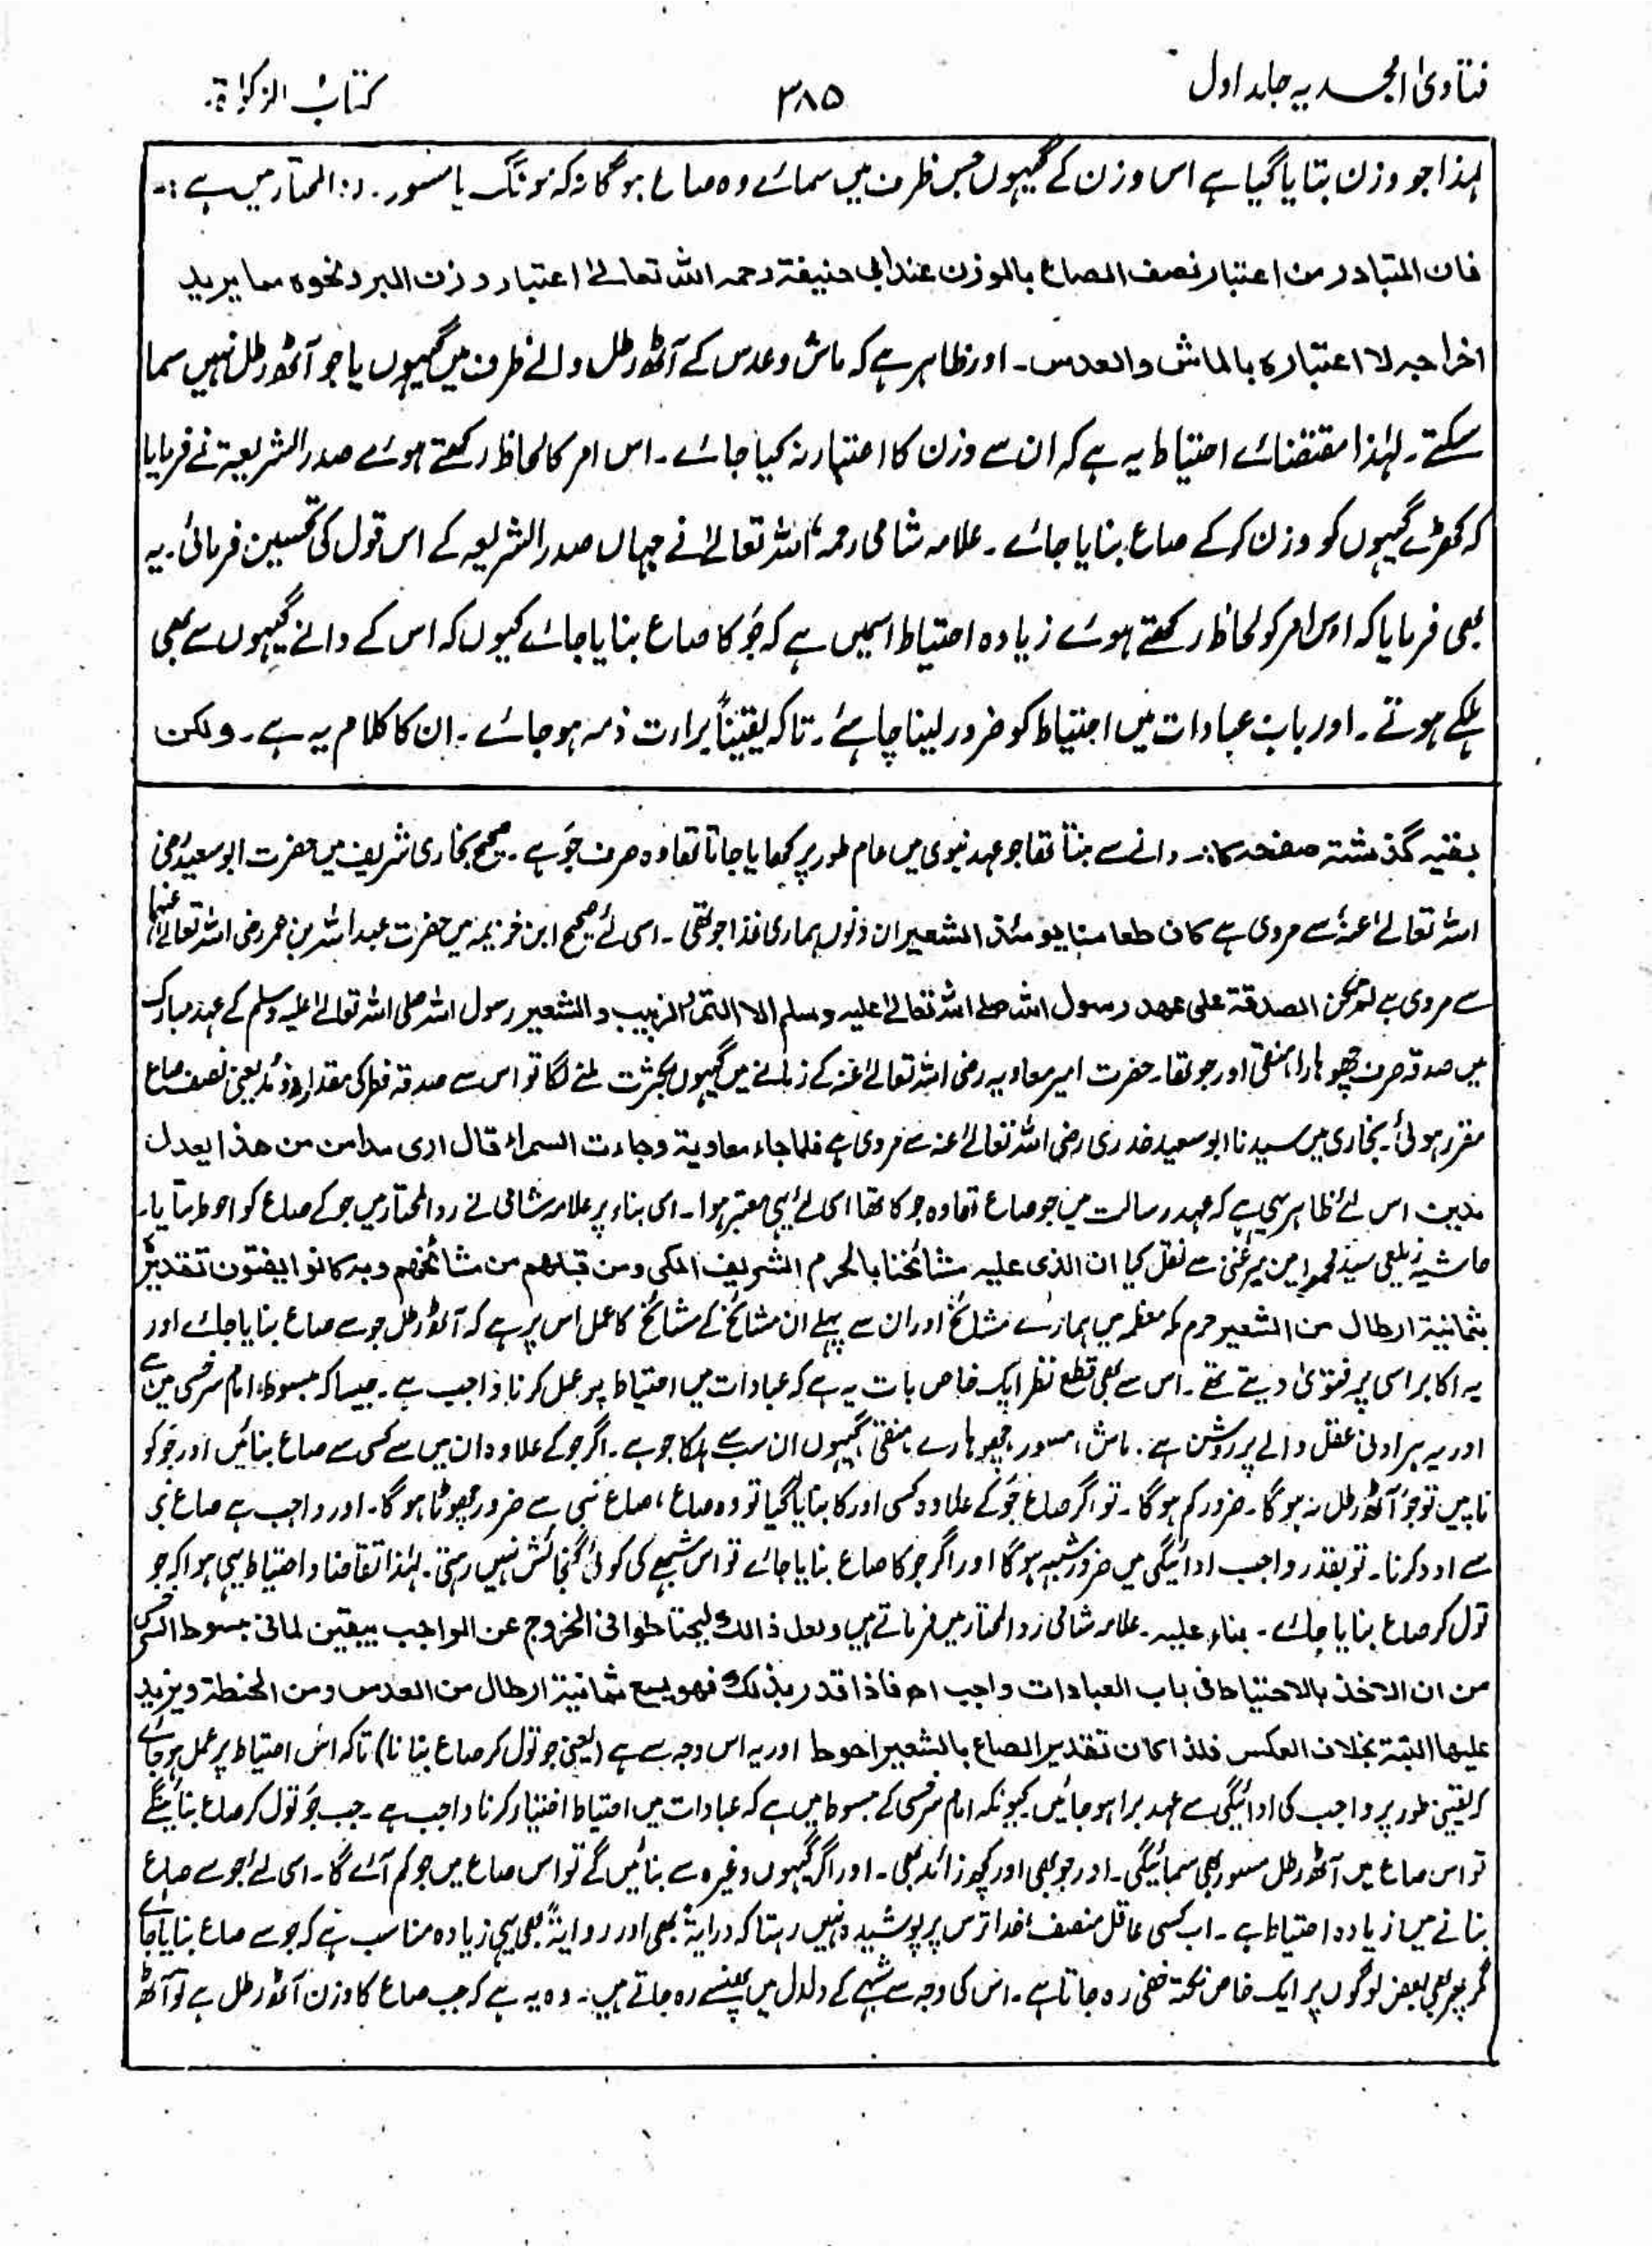 فتاویٰ امجدیہ جلد اول
۳۸۵
کتاب الزکوٰۃ
لہٰذا جو وزن بتایا گیا ہے اس وزن کے گیہوں جس ظرف میں سمائے وہ صاع ہوگا نہ کہ مونگ یا مسور۔ ردالمحتار میں ہے :۔
فان المتبادر من اعتبار نصف الصاع بالوزن عند ابی حنیفۃ رحمہ اللہ تعالےٰ اعتبار وزن البر و نحوہ مما یرید
اخراجہ لا اعتبارہ بالماش والعدس۔ اور ظاہر ہے کہ ماش و عدس کے آٹھ رطل والے ظرف میں گیہوں یا جو آٹھ رطل نہیں سما
سکتے۔ لہٰذا مقتضائے احتیاط یہ ہے کہ ان سے وزن کا اعتبار نہ کیا جائے۔ اس امر کا لحاظ رکھتے ہوئے صدر الشریعۃ نے فرمایا
کہ کھڑے گیہوں کو وزن کر کے صاع بنایا جائے۔ علامہ شامی رحمہ اللہ تعالےٰ نے جہاں صدر الشریعہ کے اس قول کی تحسین فرمائی۔ یہ
بھی فرمایا کہ اس امر کو لحاظ رکھتے ہوئے زیادہ احتیاط اسمیں ہے کہ جَو کا صاع بنایا جائے کیوں کہ اس کے دانے گیہوں سے بھی
ہلکے ہوتے۔ اور باب عبادات میں احتیاط کو ضرور لینا چاہئے۔ تاکہ یقیناً براءت ذمہ ہو جائے۔ ان کا کلام یہ ہے۔ ولکن
بقیہ گذشتہ صفحہ کا:۔ دانے سے بنتا تھا جو عہد نبوی میں عام طور پر کھایا جاتا تھا وہ صرف جَو ہے۔ صحیح بخاری شریف میں حضرت ابو سعید رضی
اللہ تعالےٰ عنہٗ سے مروی ہے کان طعامنا یومئذ الشعیر ان دنوں ہماری غذا جو تھی۔ اسی لئے صحیح ابن خزیمہ میں حضرت عبد اللہ بن عمر رضی اللہ تعالےٰ عنہما
سے مروی ہے لم تکن الصدقۃ علی عھد رسول اللہ صلے اللہ تعالےٰ علیہ وسلم الا التمر والزبیب والشعیر رسول اللہ صلی اللہ تعالےٰ علیہ وسلم کے عہد مبارک
میں صدقہ صرف چھوہارا، منقی اور جو تھا۔ حضرت امیر معاویہ رضی اللہ تعالےٰ عنہ کے زمانے میں گیہوں بکثرت ملنے لگا تو اس سے صدقہ فطر کی مقدار دو مُد یعنی نصف صاع
مقرر ہوئی۔ بخاری میں سیدنا ابو سعید خدری رضی اللہ تعالےٰ عنہ سے مروی ہے فلما جاء معاویۃ وجاءت السمراء قال اری مدا من من ھذا یعدل
مدین اس لئے ظاہر یہی ہے کہ عہد رسالت میں جو صاع تھا وہ جو کا تھا اسی لئے یہی معتبر ہوا۔ اسی بناء پر علامہ شامی نے ردالمحتار میں جو کے صاع کو احوط بتایا۔
حاشیہ زیلعی سید محمد امین میرغنی سے نقل کیا ان الذی علیہ مشائخنا بالحرم الشریف المکی ومن قبلھم من مشائخھم وبہ کانوا یفتون تقدیرہٗ
بثمانیۃ ارطال من الشعیر حرم مکہ معظمہ میں ہمارے مشائخ اور ان سے پہلے ان مشائخ کے مشائخ کا عمل اس پر ہے کہ آٹھ رطل جو سے صاع بنایا جائے اور
یہ اکابر اسی پر فتویٰ دیتے تھے۔ اس سے بھی قطع نظر ایک خاص بات یہ ہے کہ عبادات میں احتیاط پر عمل کرنا واجب ہے۔ جیسا کہ مبسوط امام سرخسی میں ہے
اور یہ ہر ادنیٰ عقل والے پر روشن ہے۔ ماش، مسور، چھوہارے، منقی، گیہوں ان سب سے ہلکا جو ہے۔ اگر جو کے علاوہ ان میں سے کسی سے صاع بنائیں اور جَو کو
ناپیں تو جَو آٹھ رطل نہ ہوگا۔ ضرور کم ہوگا۔ تو اگر صاع جَو کے علاوہ کسی اور کا بنایا گیا تو وہ صاع، صاع نبی سے ضرور چھوٹا ہوگا۔ اور واجب ہے صاع نبی
سے ادا کرنا۔ تو بقدر واجب ادائیگی میں ضرور شبہہ ہوگا اور اگر جو کا صاع بنایا جائے تو اس شبہے کی کوئی گنجائش نہیں رہتی۔ لہٰذا تقاضا و احتیاط یہی ہوا کہ جو
تول کر صاع بنایا جائے۔ بناءً علیہ۔ علامہ شامی ردالمحتار میں فرماتے ہیں ولعل ذالک لیحتاطوا فی الخروج عن الواجب بیقین لما فی مبسوط السرخسی
من ان الاخذ بالاحتیاط فی باب العبادات واجب اھ فاذا قدر بذلک فھو یسع ثمانیۃ ارطال من العدس ومن الحنطۃ ویزید
علیھا البتۃ بخلاف العکس فلذا کان تقدیر الصاع بالشعیر احوط اور یہ اس وجہ سے ہے (یعنی جو تول کر صاع بنانا) تاکہ اس احتیاط پر عمل ہو جائے
کہ یقینی طور پر واجب کی ادائیگی سے عہدہ برا ہو جائیں کیونکہ امام سرخسی کے مبسوط میں ہے کہ عبادات میں احتیاط اختیار کرنا واجب ہے۔ جب جَو تول کر صاع بنائینگے
تو اس صاع میں آٹھ رطل مسور بھی سمائیگی۔ اور جو بھی اور کچھ زائد بھی۔ اور اگر گیہوں وغیرہ سے بنائیں گے تو اس صاع میں جو کم آئے گا۔ اسی لئے جو سے صاع
بنانے میں زیادہ احتیاط ہے۔ اب کسی عاقل منصف خدا ترس پر پوشیدہ نہیں رہتا کہ درایۃً بھی اور روایۃً بھی یہی زیادہ مناسب ہے کہ جو سے صاع بنایا جائے
مگر پھر بھی بعض لوگوں پر ایک خاص نکتہ مخفی رہ جاتا ہے۔ اس کی وجہ سے شبہے کے دلدل میں پھنسے رہ جاتے ہیں۔ وہ یہ ہے کہ جب صاع کا وزن آٹھ رطل ہے تو آٹھ